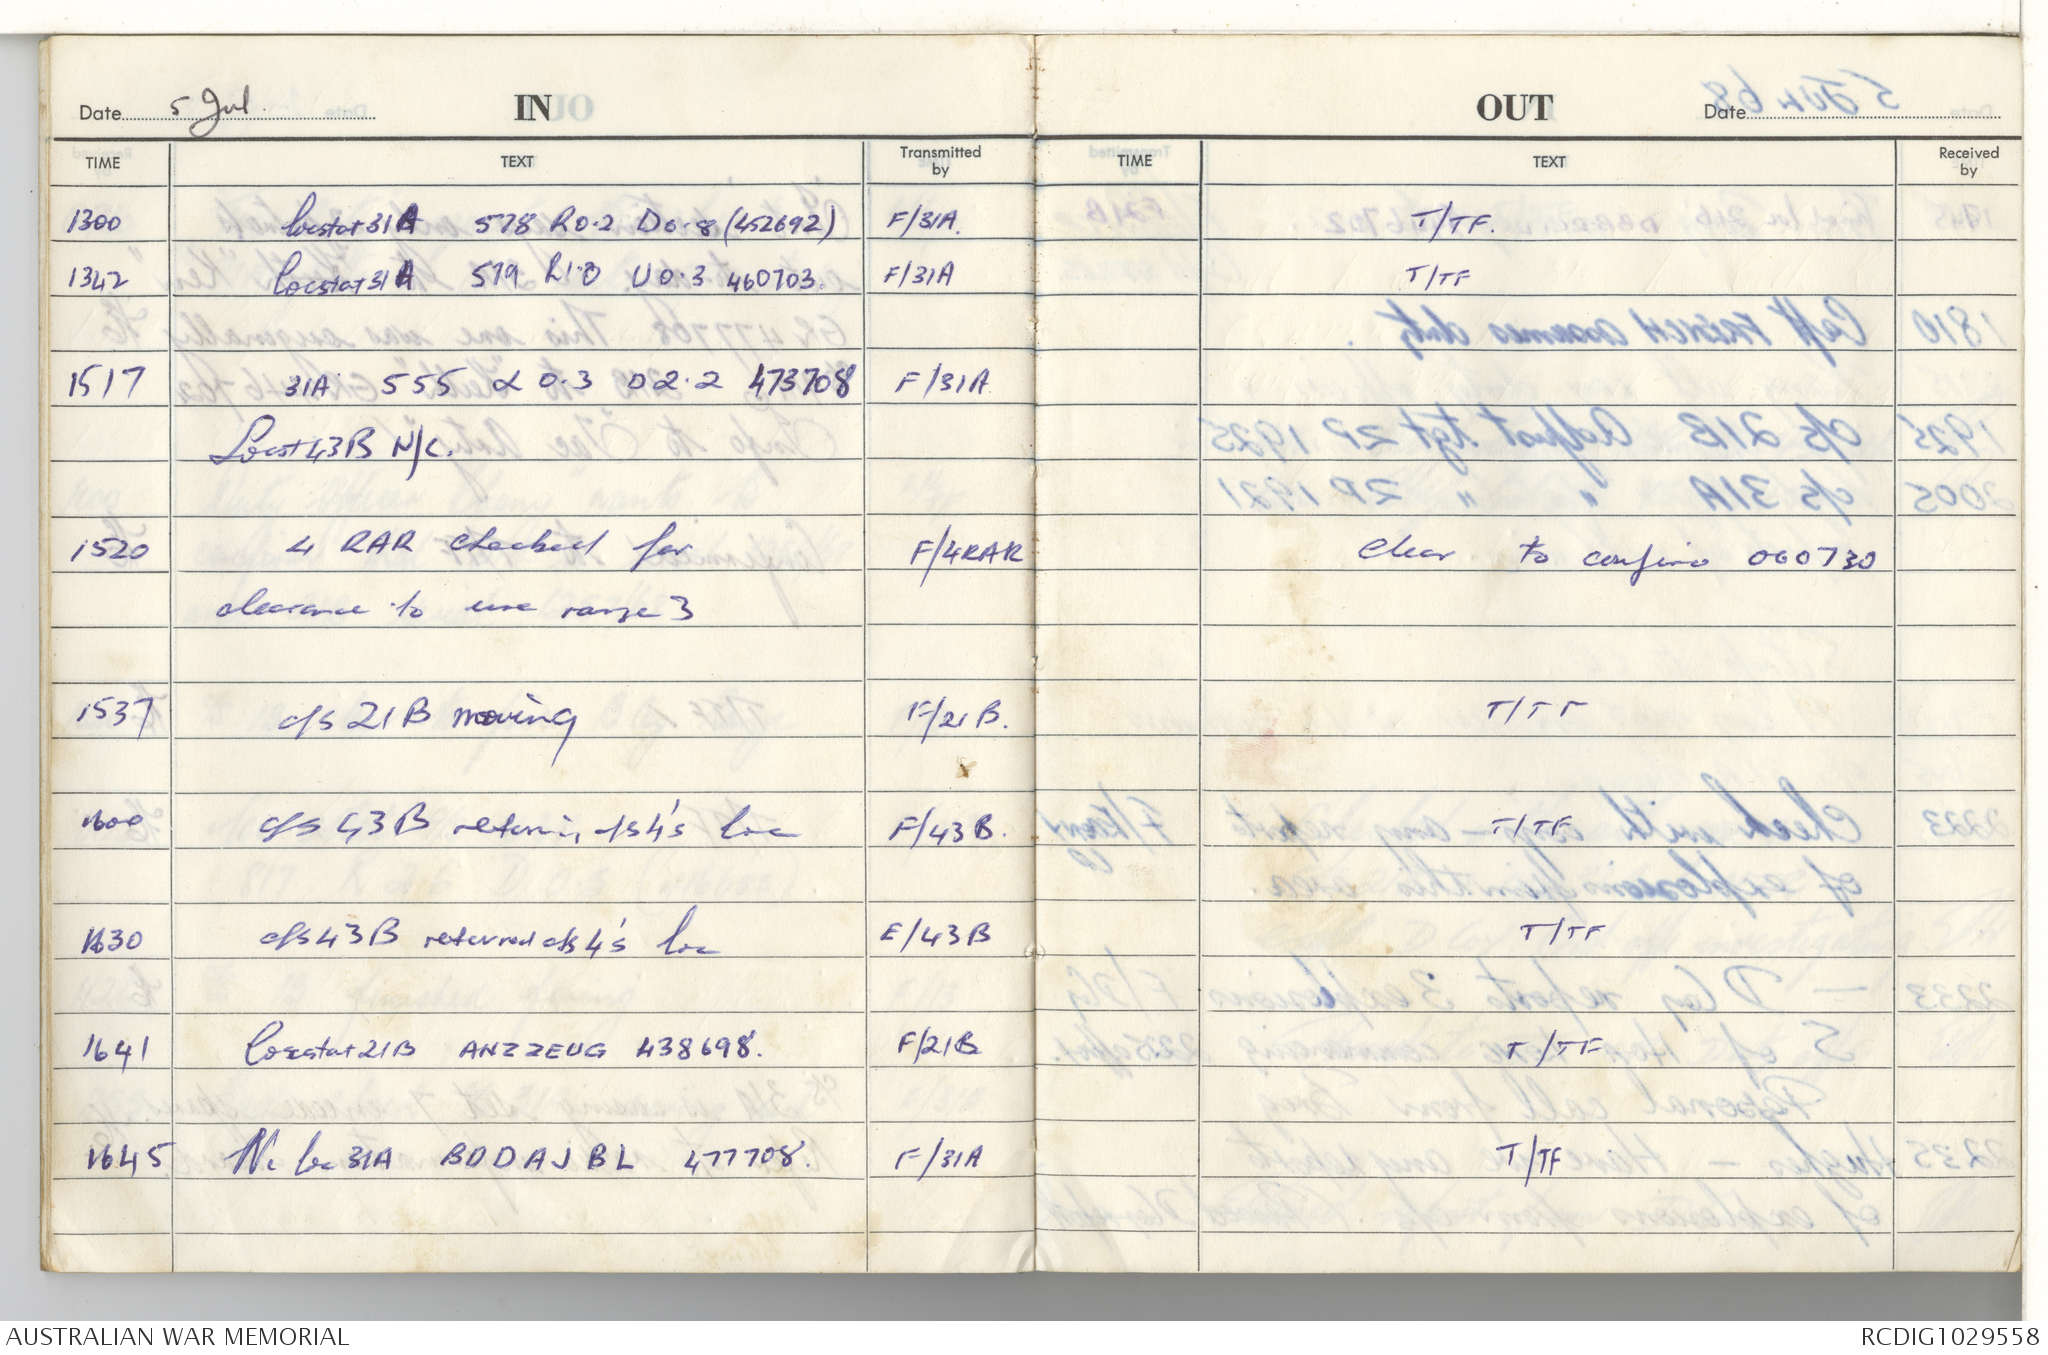 Date 5 Jul IN
TIME TEXT Transmitted by
1300 locstat 31A 578 R0.2 D0.8 (452692) F/31A.
1342 Locstat 31A 519 R1.0 U0.3 460703. F/31A
1517 31A 555 L0.3 D2.2 473708 F/31A
Locst 43B N/C.
1520 4 RAR checked for F/4RAR
clearance to use range 3
1537 c/s 21B moving F/21B.
1600 c/s 43B returning c/s 4's loc F/43B.
1630 c/s 43B returned c/s 4's loc F/43B
1641 Locstat 21B ANZZEUG 438698. F/21B
1645 loc 31A BDDAJBL 477708. F/31A
OUT Date
TIME TEXT Received by
T/TF.
T/TF
Clear to confirm 060730
T/TF
T/TF
T/TF
T/TF
T/TF
AUSTRALIAN WAR MEMORIAL RCDIG1029558